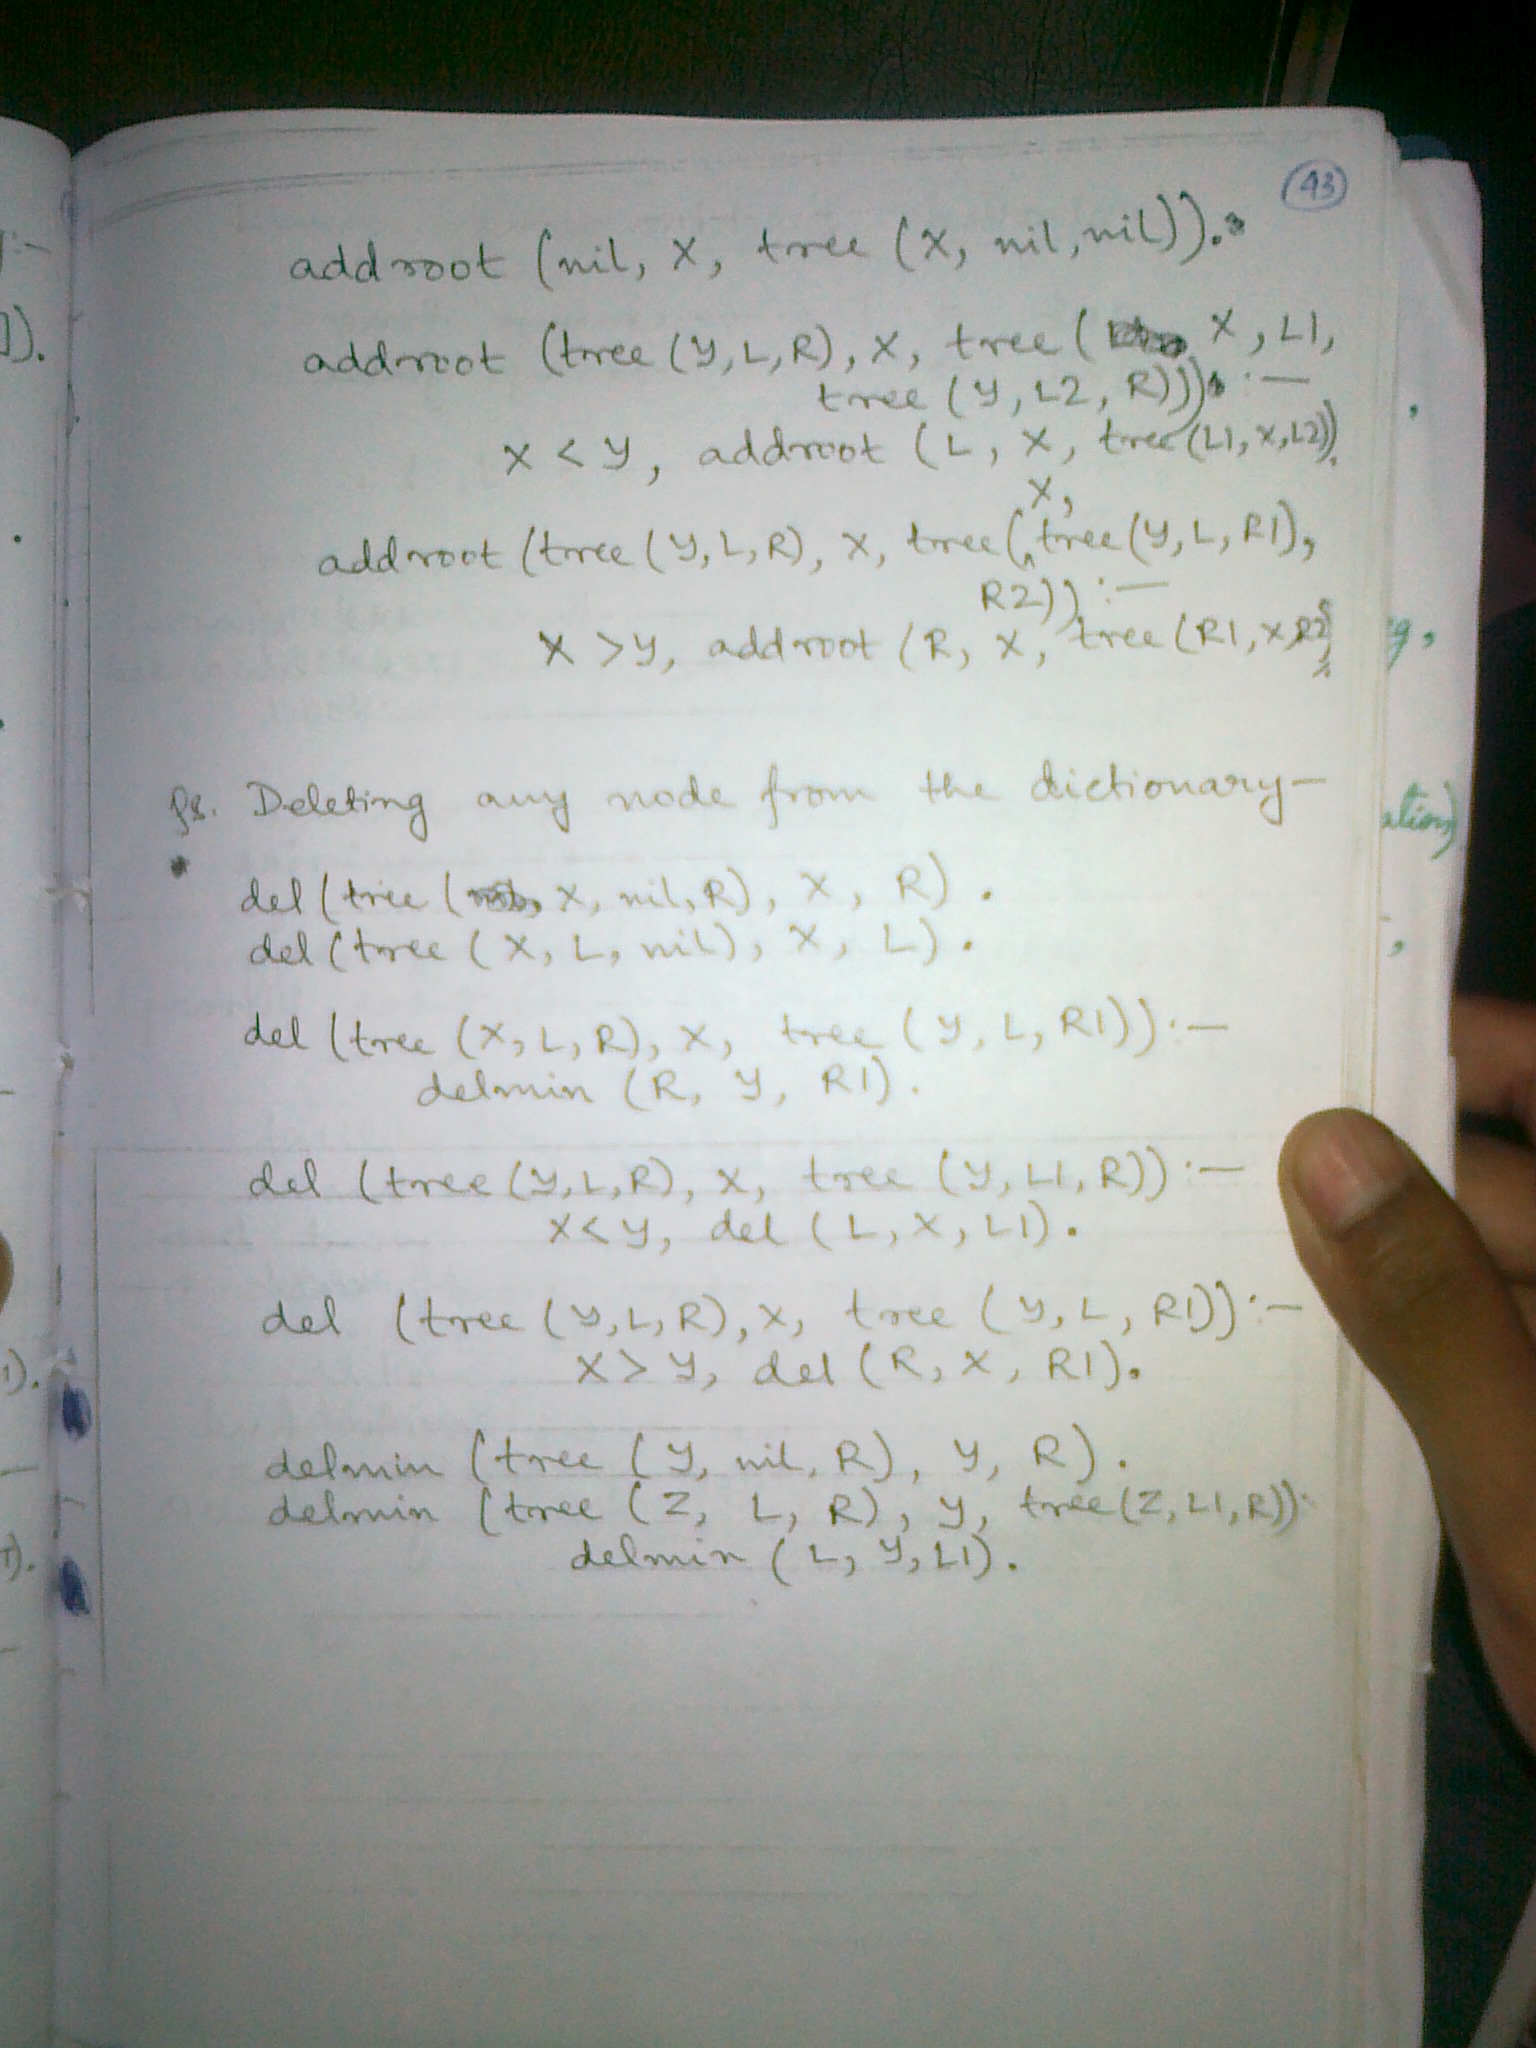 43
addroot (nil, X, tree (X, nil, nil)).
addroot (tree (Y, L, R), X, tree ( X, L1,
tree (Y, L2, R))) :-
X < Y, addroot (L, X, tree (L1, X, L2)).
X,
addroot (tree (Y, L, R), X, tree ( tree (Y, L, R1),
R2)) :-
X > Y, addroot (R, X, tree (R1, X, R2)).
P8. Deleting any node from the dictionary-
del (tree ( X, nil, R), X, R).
del (tree (X, L, nil), X, L).
del (tree (X, L, R), X, tree (Y, L, R1)) :-
delmin (R, Y, R1).
del (tree (Y, L, R), X, tree (Y, L1, R)) :-
X < Y, del (L, X, L1).
del (tree (Y, L, R), X, tree (Y, L, R1)) :-
X > Y, del (R, X, R1).
delmin (tree (Y, nil, R), Y, R).
delmin (tree (Z, L, R), Y, tree (Z, L1, R)):
delmin (L, Y, L1).